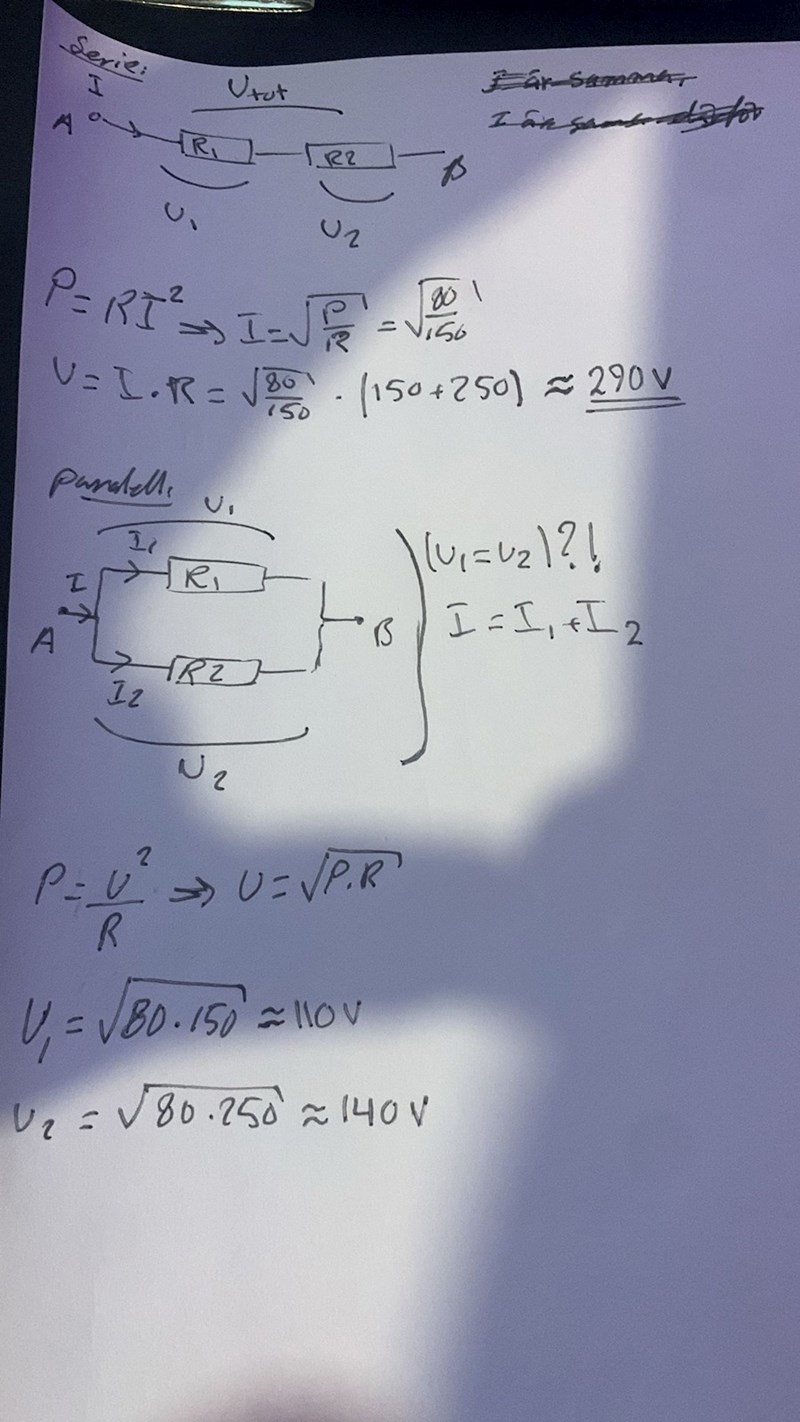 Serie:
I
U tot
A
R₁
R2
B
U₁
U₂
I är samma,
I är
P = RI² ⇒ I = √(P/R) = √(80/150)
U = I · R = √(80/150) · (150+250) ≈ 290 V
Parallell:
U₁
I₁
R₁
I
A
B
R2
I2
U₂
(U₁ = U₂)?!
I = I₁ + I₂
P = U²/R ⇒ U = √(P.R)
U₁ = √(80.150) ≈ 110 V
U₂ = √(80.250) ≈ 140 V